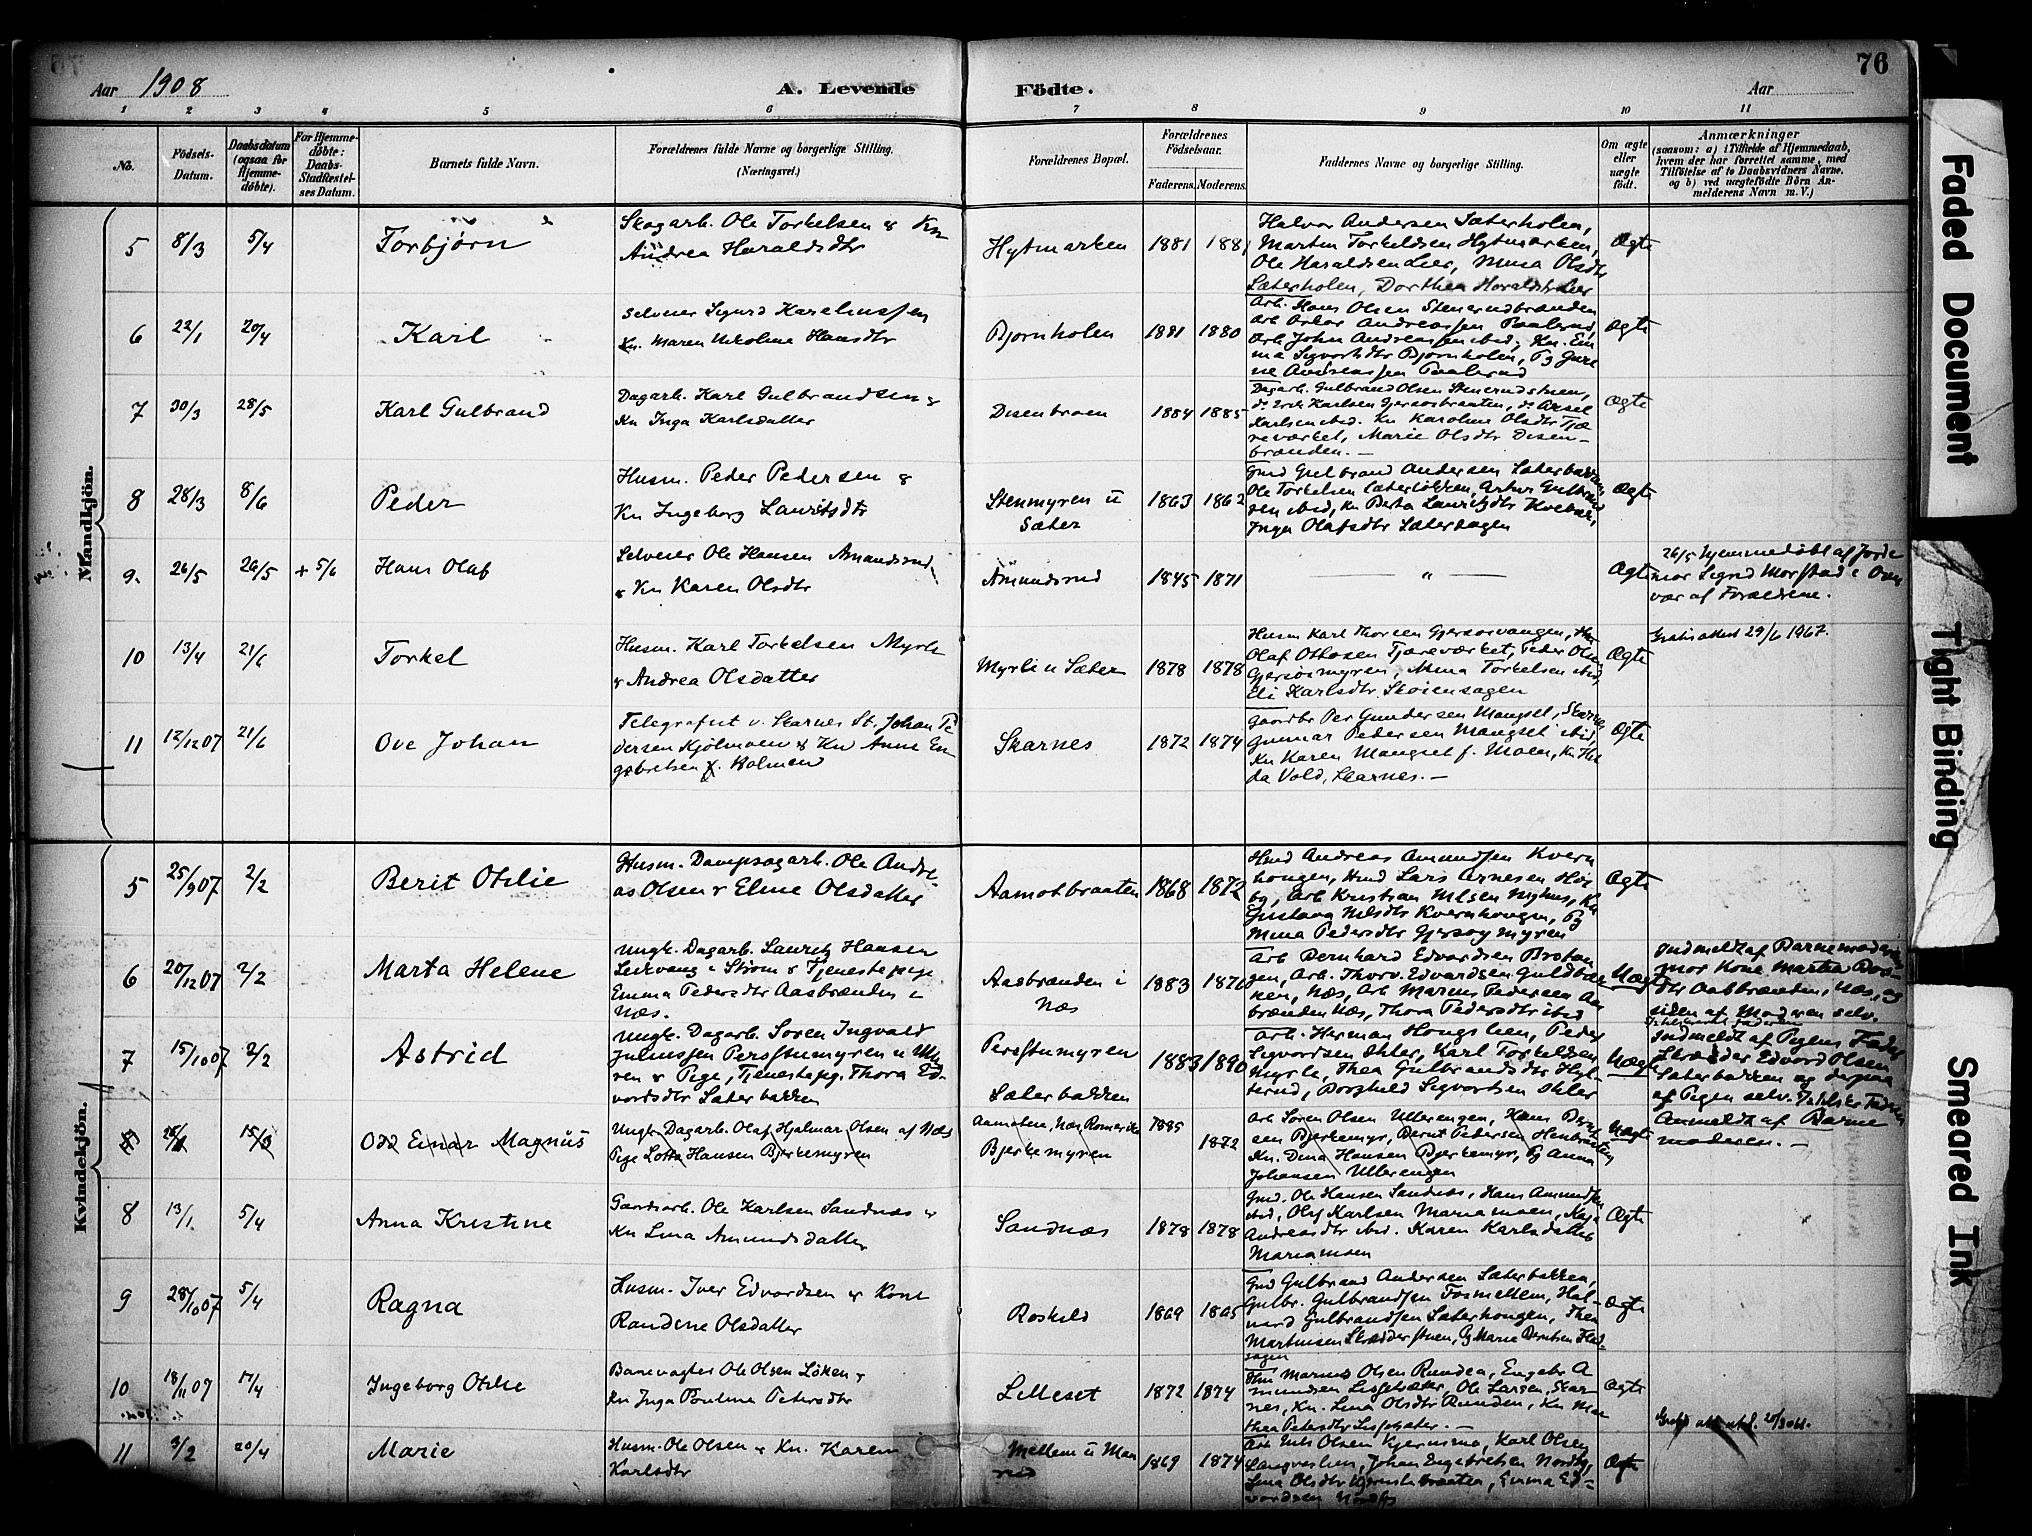 76
Aar 1908
A. Levende
Födte.
Aar
1 2 3 4 5 6 7 8 9 10 11
No.
Födsels-Datum.
Daabsdatum (ogsaa for Hjemme-döbte).
For Hjemme-döbte: Daabs-Stadfæstel-ses Datum.
Barnets fulde Navn.
Forældrenes fulde Navne og borgerlige Stilling. (Næringsvei.)
Forældrenes Bopæl.
Forældrenes Födselsaar.
Faderens. Moderens.
Faddernes Navne og borgerlige Stilling.
Om ægte eller uægte födt.
Anmærkninger
(saasom: a) i Tilfælde af Hjemmedaab,
hvem der har forrettet samme, med
Tilföielse af to Daabsvidners Navne,
og b) ved uægtefödte Börn An-
melderens Navn m. V.)
Mandkjön.
5 8/3 5/4 Torbjørn
Skogarb. Ole Torkelsen & Kn
Andrea Haraldsdtr
Hytmarken 1881 1881
Halvor Andersen Sæterholen,
Martin Torkeldsen Hytmarken,
Ole Haraldsen Lier, Mina Olsdtr
Sæterholen, Dorthea Haraldsdtr Lier
Ægte
6 22/1 20/4 Karl
Selveier Sigurd Kareliussen
Kn. Maren Nikoline Hansdtr
Bjørnholen 1881 1880
Arb. Hans Olsen Stenerudbrænden
Arb Oskar Andreassen Paalerud,
Arb John Andreassen ibid, Kn. Em
ma Sigvartsdtr Bjørnholen, Pg
Andreassen Paalerud
Ægte
7 30/3 28/5 Karl Gulbrand
Dagarb. Karl Gulbrandsen &
Kn Inga Karlsdatter
Disenbroen 1884 1885
Dagarb. Gulbrand Olsen Stenerudstuen,
do Erik Karlsen Gjersøsbraaten, do Aksel
Karlsen ibid. Kn Karoline Olsdtr Tjæ
reværket, Marie Olsdtr Disen-
brænden. —
Ægte
8 28/3 8/6 Peder
Husm. Peder Pedersen &
Kn Ingeborg Lauritsdtr
Stenmyren u
Sæter
1863 1862
Gmd Gulbrand Andersen Sæterbakken
Ole Torkelsen Sæterløkken, Artur Gulbrand
sen ibid, Kn Berta Lauritzdtr
Inga Olafsdtr Sætersagen
Ægte
9. 26/5 26/5 + 5/6 Hans Olaf
Selveier Ole Hansen Amundsrud
& Kn Karen Olsdtr
Amundsrud 1845 1871
— " —
Ægte
26/5 hjemmedøbt af Jorde
mor Sigrid Morstad i Over
vær af Forældrene.
10 13/4 21/6 Torkel
Husm. Karl Torkelsen Myrli
& Andrea Olsdatter
Myrli u Sæter 1878 1878
Husm Karl Thorsen Gjersøsvangen,
Olaf Ottosen Tjæreværket, Peder Olsen
Gjersøsmyren, Mina Torkelsen ibid,
Eli Karlsdtr Skoiensagen
Ægte
Gratis attest 29/6 1967.
11 12/12 07 21/6 Ove Johan
Telegrafist v. Skarnes St. Johan Pe
dersen Kjølmoen & Kn Anne En
gebretsen f. Holmen
Skarnes 1872 1874
Gaardbr Per Gundersen Mangset, Skarnes
Gunnar Pedersen Mangset ibid,
Kn Karen Mangset f. Moen, Kn Hil
da Vold, Skarnes. —
Ægte
Kvindekjön.
5 25/9 07 2/2 Berit Otilie
Husm. Dampsagarb. Ole Andre
as Olsen & Eline Olsdatter
Aamotbraaten 1868 1872
Hmd Andreas Amundsen Kvern
hougen, Hmd Lars Arnesen Høi
by, Arb Kristian Nilsen Myhus, Kn
Gustava Nilsdtr Kvernhougen, Pg
Mina Pedersdtr Gjersøymyren
Ægte
6 20/12 07 2/2 Marta Helene
Ungk. Dagarb. Lauritz Hansen
Leirvang i Strøm & Tjenestepige
Emma Pedersdtr Aasbrænden i
Næs.
Aasbrænden i
Næs
1883 1876
Arb Bernhard Edvardsen
gen, Arb. Thorv. Edvardsen Guldbæk
ken, Næs, Arb Marius Pedersen Aas
brænden Næs, Thora Pedersdtr ibid
Uægte
Indmeldt af Barnemoderens
mor Kone Martea
dtr Aasbrænden, Næs, og
siden af Moderen selv.
7 15/10 07 2/2 Astrid
Ungk. Dagarb. Søren Ingvald
Juliussen Persstumyren u
ren & Pige, Tjenestepg. Thora Ed-
vartsdtr Sæterbakken
Persstumyren
Sæterbakken
1883 1890
Arb. Herman Hougslien, Peder
Sigvartsen Okler, Karl Torkeldsen
Myrli, Thea Gulbrandsdtr Hyt-
terud, Borghild Sigvartsen Okler
Uægte
Indmeldt af Pigens Fader
Skrædder Edvard Olsen
Sæterbakken og derpaa
af Pigen selv.
Odd Einar Magnus
Ungk Dagarb. Olaf Hjalmar Olsen af Næs
Pige Lotta Hansen Bjerkemyren
Aamoten, Næs Romerike
Bjerkemyren
1885
1872
Arb Søren Olsen Ullerengen, Hans
sen Bjerkemyr, Bernt Pedersen
Kn. Dina Hansen Bjerkemyr, Pg Anna
Johansen Ullerengen
Uægte
Anmeldt af Barne
moderen. —
8 13/1. 5/4 Anna Kristine
Gaardsarb. Ole Karlsen Sandnæs &
Kn Lina Amundsdatter
Sandnæs 1878 1878
Gmd. Ole Hansen Sandnæs, Hans Amundsen
ibid, Olaf Karlsen Mariamoen, Kaja
Andreasdtr ibid. Karen Karlsdatter
Mariamoen
Ægte
9 28/10 07 5/4 Ragna
Husm. Iver Edvardsen & Kone
Randine Olsdatter
Roskild 1869 1865
Gmd Gulbrand Andersen Sæterbakken,
Gulbr. Gulbrandsen Fosmellem, Hal-
vard Gulbrandsen Sæterhougen, Thea
Martinsen Skrædderstuen, Pg Marie Berntsen
sagen
Ægte
10 18/11 07 17/4 Ingeborg Otilie
Banevagter Ole Olsen Løken &
Kn Inga Pauline Petersdtr
Lilleset 1872 1874
Marius Olsen Runden, Engebr. A
mundsen Lisjesæter, Ole Larsen Skar
nes, Kn. Lina Olsdtr Runden, Kn Mar
thea Petersdtr Lisjesæter. —
Ægte
11 3/2 20/4 Marie
Husm. Ole Olsen & Kn. Karen
Karlsdtr
Mellem u
1869 1874
Arb Nils Olsen Kjernsmo, Karl Olsen
Langverslien, Johan Engebretsen Nordby,
Lina Olsdtr Kjernslibraaten, Emma Ed-
vardsen Nordby
Ægte
Faded Document
Tight Binding
Smeared Ink